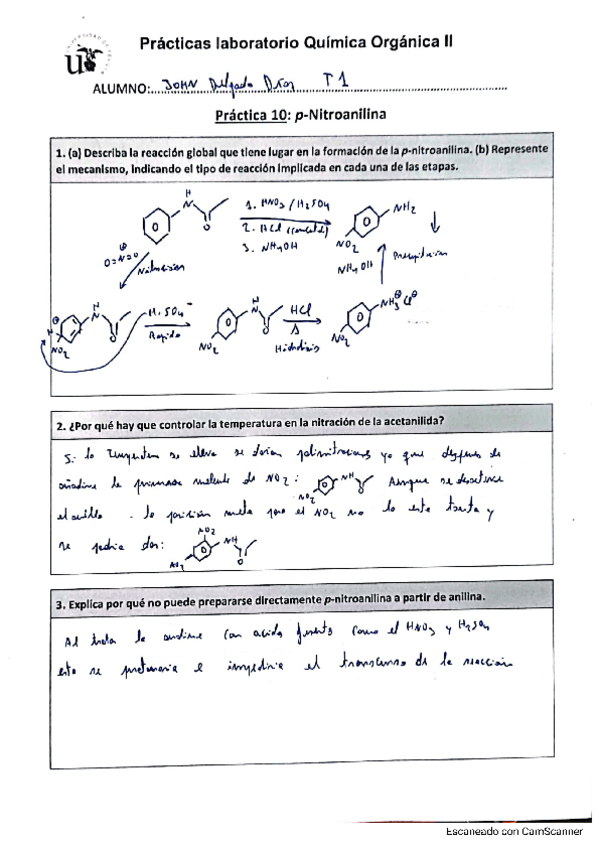 Prácticas laboratorio Química Orgánica II
us
ALUMNO: JOHN Delgado T1
Práctica 10: p-Nitroanilina
1. (a) Describa la reacción global que tiene lugar en la formación de la p-nitroanilina. (b) Represente
el mecanismo, indicando el tipo de reacción implicada en cada una de las etapas.
H N O
1. HNO3 / H2SO4
2. HCl
3. NH4OH
NH2 NO2
O=N=O
Nitración
NH4OH Precipitación
H NO2 N H O
HSO4-
Rápido
NO2 N H O
HCl
Δ
Hidrólisis
NO2 NH3 Cl
2. ¿Por qué hay que controlar la temperatura en la nitración de la acetanilida?
Si la temperatura se eleva se darían polinitraciones ya que después de
añadirse la primera molécula de NO2: NO2 NH Aunque se desactive
el anillo. la posición meta para el NO2 no lo esta tanto y
se podría dar: NO2 NO2 NH O
3. Explica por qué no puede prepararse directamente p-nitroanilina a partir de anilina.
Al tratar la anilina con acido fuerte como el HNO3 y H2SO4
esta se protonaria e impediria el transcurso de la reacción
Escaneado con CamScanner